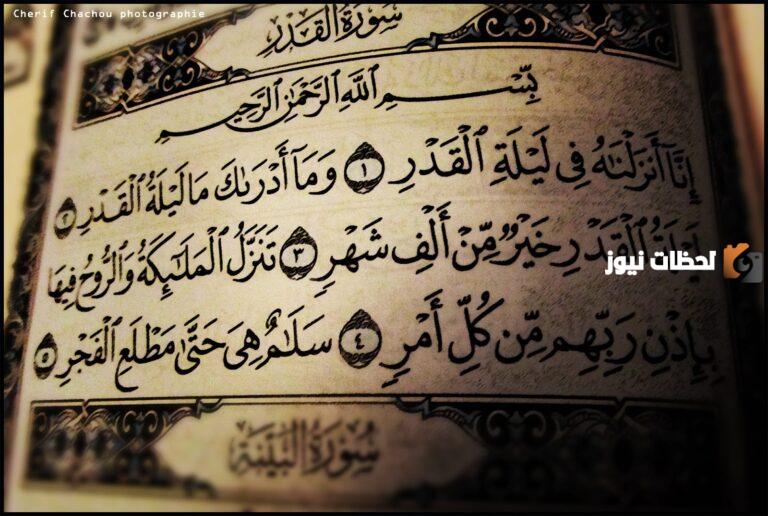 Cherif Chachou photographie
سُورَةُ القَدْرِ
بِسْمِ ٱللَّهِ ٱلرَّحْمَٰنِ ٱلرَّحِيمِ
إِنَّآ أَنزَلْنَٰهُ فِى لَيْلَةِ ٱلْقَدْرِ ١ وَمَآ أَدْرَىٰكَ مَا لَيْلَةُ ٱلْقَدْرِ ٢
لَيْلَةُ ٱلْقَدْرِ خَيْرٌ مِّنْ أَلْفِ شَهْرٍ ٣ تَنَزَّلُ ٱلْمَلَٰٓئِكَةُ وَٱلرُّوحُ فِيهَا
لحظات نيوز
بِإِذْنِ رَبِّهِم مِّن كُلِّ أَمْرٍ ٤ سَلَٰمٌ هِىَ حَتَّىٰ مَطْلَعِ ٱلْفَجْرِ ٥
سُورَةُ البَيِّنَةِ